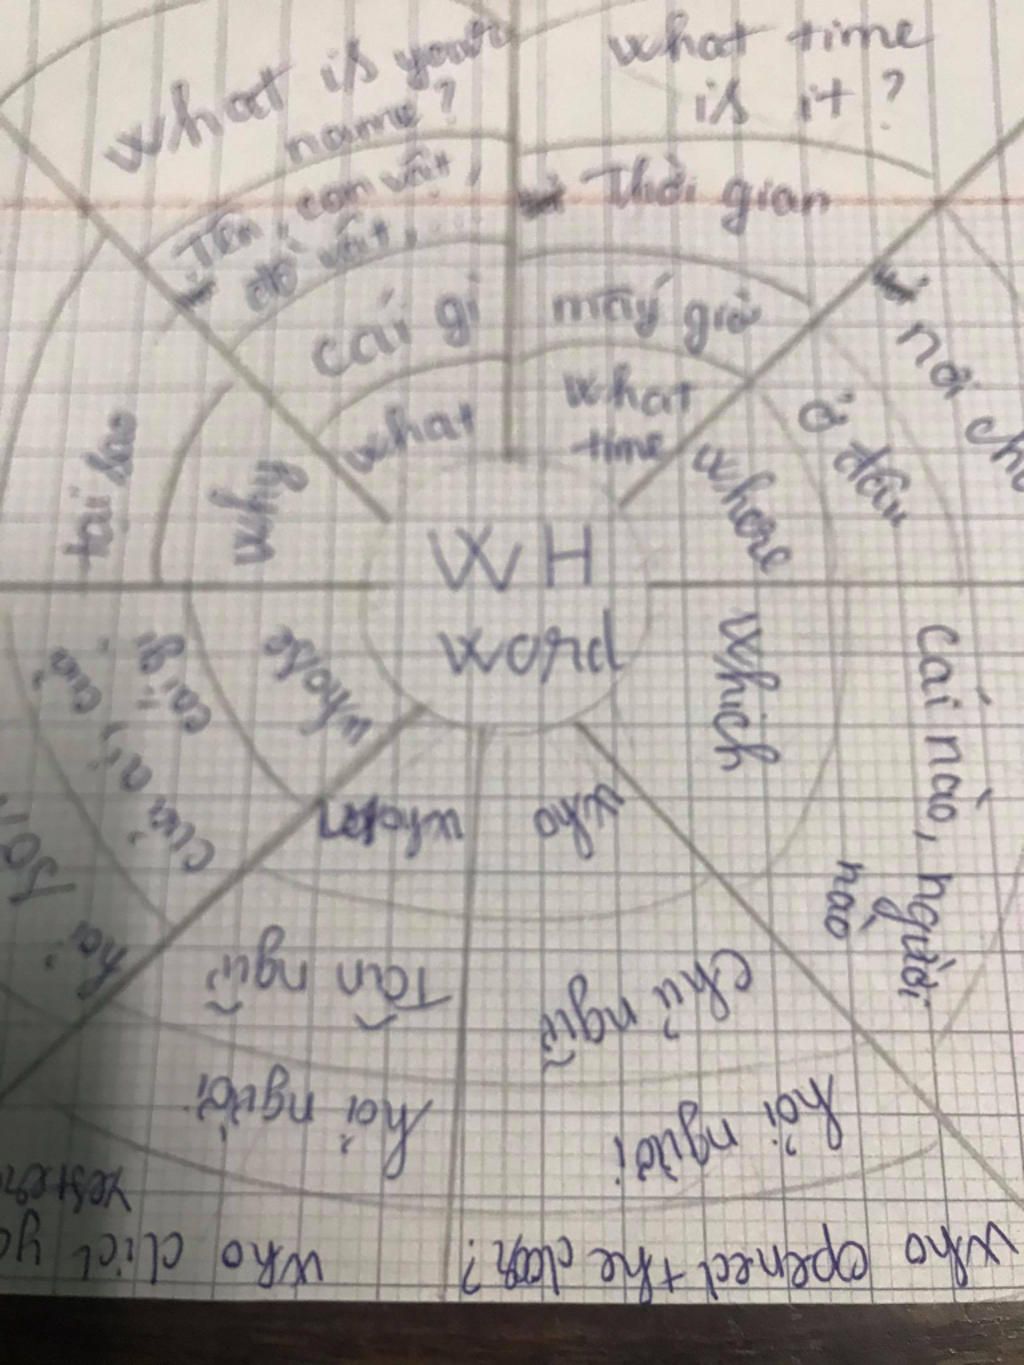 WH
word
what
cái gì
Tên, con vật,
đồ vật,
What is your
name?
what
time
mấy giờ
Thời gian
what time
is it?
where
ở đâu
nơi
which
cái nào, người
nào
who
chủ ngữ
hỏi người
who opened the door?
whom
Tân ngữ
hỏi người
who did
whose
của ai, của
cái gì
hỏi
why
tại sao